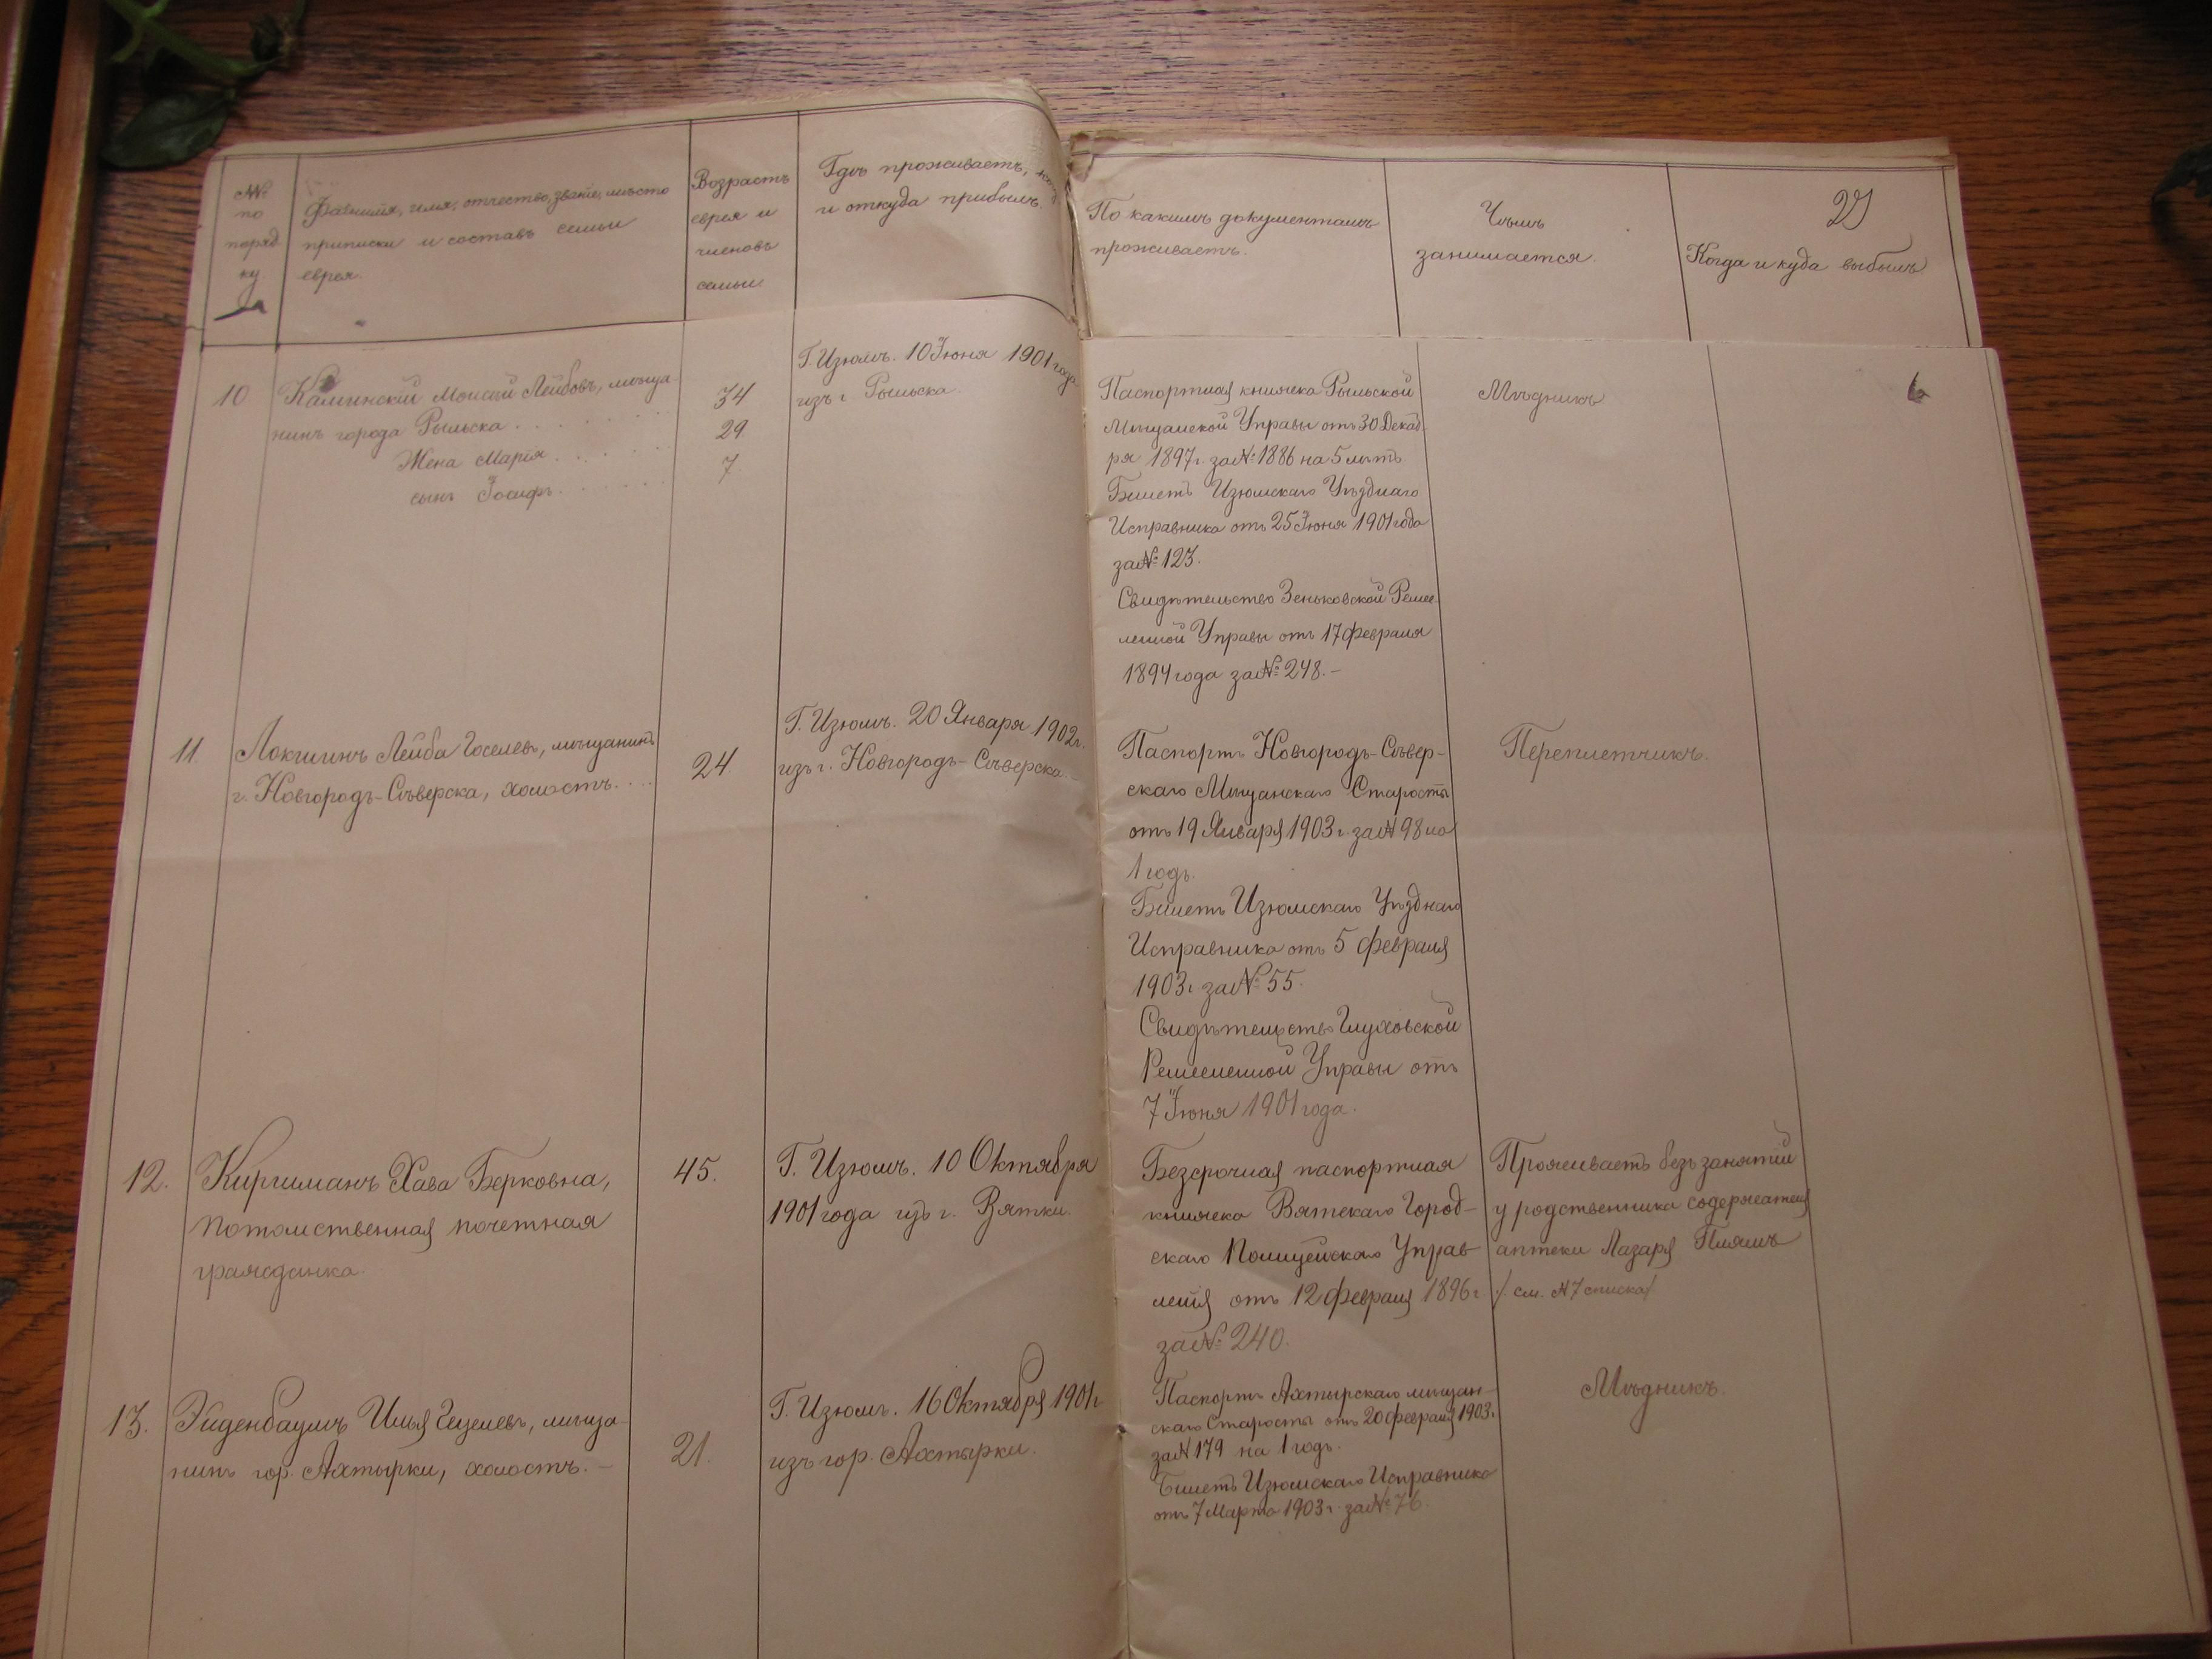 №№
по
поряд
ку
Фамилія, имя, отчество, званіе, мѣсто
приписки и составъ семьи
еврея.
Возрастъ
еврея и
членовъ
семьи.
Гдѣ проживаетъ,
и откуда прибылъ.
По какимъ документамъ
проживаетъ.
Чѣмъ
занимается.
Когда и куда выбылъ
10
Каминскій Моисей Лейбовъ, мѣща-
нинъ города Рыльска . . . . .
Жена Марія . . . . . .
сынъ Іосифъ . . . . . .
34
29
7
Г. Изюмъ. 10 Іюня 1901 года
изъ г Рыльска.
Паспортная книжка Рыльской
Мѣщанской Управы отъ 30 Декаб-
ря 1897г. за № 1886 на 5 лѣтъ
Билетъ Изюмскаго Уѣзднаго
Исправника отъ 25 Іюня 1901 года
за № 123.
Свидѣтельство Зеньковской Ремес-
ленной Управы отъ 17 Февраля
1894 года за № 248.-
Мѣдникъ
6
11.
Локшинъ Лейба Іоселевъ, мѣщанинъ
г. Новгородъ-Сѣверска, холостъ. . .
24.
Г. Изюмъ. 20 Января 1902г.
изъ г. Новгородъ-Сѣверска.
Паспортъ Новгородъ-Сѣвер-
скаго Мѣщанскаго Старосты
отъ 19 Января 1903 г. за № 98 на
1 годъ.
Билетъ Изюмскаго Уѣзднаго
Исправника отъ 5 Февраля
1903г за № 55.
Свидѣтельство Глуховской
Ремесленной Управы отъ
7 Іюня 1901 года.
Переплетчикъ.
12.
Киршманъ Хава Берковна,
потомственная почетная
гражданка.
45.
Г. Изюмъ. 10 Октября
1901 года изъ г. Вятки.
Безсрочная паспортная
книжка Вятскаго Город-
скаго Полицейскаго Управ-
ленія отъ 12 Февраля 1896 г
за № 240.
Проживаетъ безъ занятій
у родственника содержателя
аптеки Лазаря Плямъ
/см. № 7 списка/
13.
Эйденбаумъ Илья Гецелевъ, мѣща-
нинъ гор. Ахтырки, холостъ.-
21.
Г. Изюмъ. 16 Октября 1901г
изъ гор. Ахтырки.
Паспортъ Ахтырскаго мѣщан-
скаго Старосты отъ 20 Февраля 1903г.
за № 179 на 1 годъ.
Билетъ Изюмскаго Исправника
отъ 7 Марта 1903 г. за № 76.
Мѣдникъ.